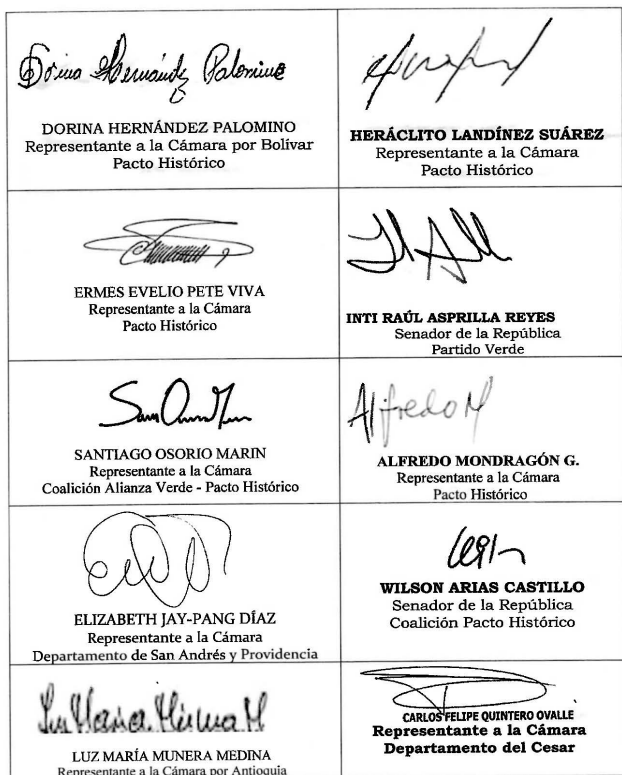 Dorina Hernández Palomino
DORINA HERNÁNDEZ PALOMINO
Representante a la Cámara por Bolívar
Pacto Histórico
HERÁCLITO LANDÍNEZ SUÁREZ
Representante a la Cámara
Pacto Histórico
ERMES EVELIO PETE VIVA
Representante a la Cámara
Pacto Histórico
INTI RAÚL ASPRILLA REYES
Senador de la República
Partido Verde
SANTIAGO OSORIO MARIN
Representante a la Cámara
Coalición Alianza Verde - Pacto Histórico
Alfredo M
ALFREDO MONDRAGÓN G.
Representante a la Cámara
Pacto Histórico
ELIZABETH JAY-PANG DÍAZ
Representante a la Cámara
Departamento de San Andrés y Providencia
WILSON ARIAS CASTILLO
Senador de la República
Coalición Pacto Histórico
Luz María Múnera M
LUZ MARÍA MUNERA MEDINA
Representante a la Cámara por Antioquia
CARLOS FELIPE QUINTERO OVALLE
Representante a la Cámara
Departamento del Cesar